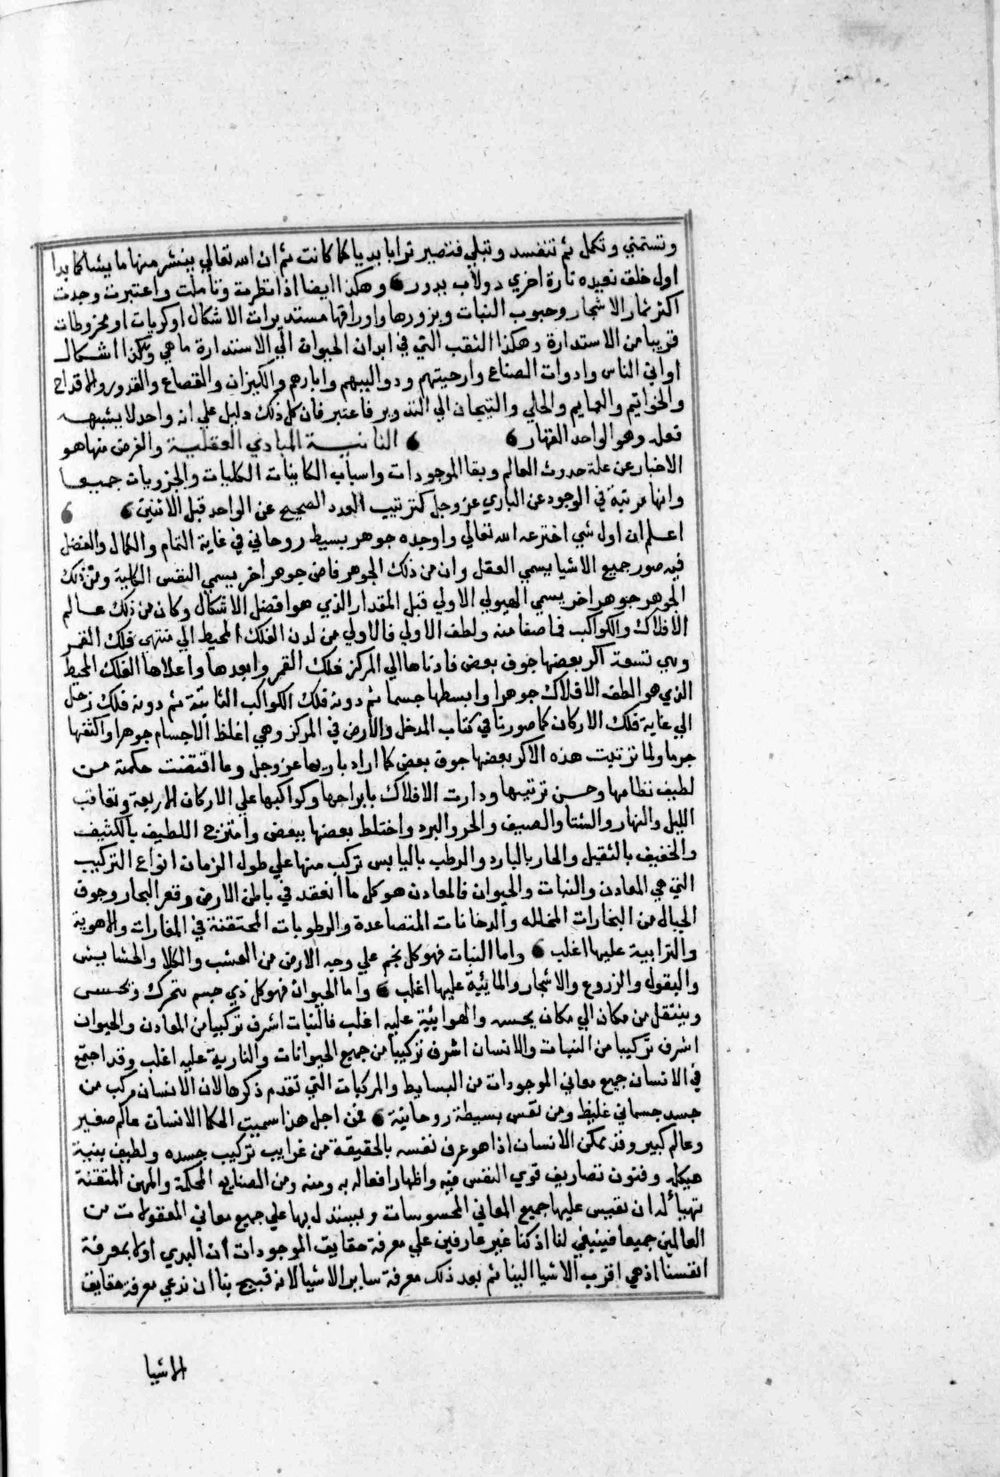 وتستمني وتكمل ثم تنفسد وتبلي فتصير ترابا بديا كما كانت ثم ان الله تعالي ينشر منها ما يشا كما بدا
اول خلق نعيده تارة اخري دولاب يدور وهكذا ايضا اذا نظرت وتاملت واعتبرت وجدت
اكثر ثمار الاشجار وحبوب النبات وبزورها واوراقها مستديرات الاشكال او كريات او مخروطات
قريبا من الاستدارة وهكذا الثقب التي في ابدان الحيوان الي الاستدارة ما هي وهكذا اشكال
اواني الناس وادوات الصناع وارحيتهم ودواليبهم وابارهم والكيزان والقصاع والقدور والاقداح
والخواتيم والعمايم والحلي والتيجان الي التدوير فاعتبر فان كل ذلك دليل علي انه واحد لا يشبهه
فعله وهو الواحد القهار الثانية المبادي العقلية والغرض منها هو
الاخبار عن علة حدوث العالم وبقا الموجودات واسباب الكاينات الكليات والجزويات جميعا
وانها مرتبة في الوجود عن الباري عز وجل كترتيب العدد الصحيح عن الواحد قبل الاثنين
اعلم ان اول شي اخترعه الله تعالي واوجده جوهر بسيط روحاني في غاية التمام والكمال والفضل
فيه صور جميع الاشيا يسمي العقل وان من ذلك الجوهر فاض جوهر اخر يسمي النفس الكلية ومن ذلك
الجوهر جوهر اخر يسمي الهيولي الاولي قبل المقدار الذي هو افضل الاشكال وكان من ذلك عالم
الافلاك والكواكب فما صفا منه ولطف الاولي فالاولي من لدن الفلك المحيط الي منتهي فلك القمر
وهي تسعة اكر بعضها جوف بعض فادناها الي المركز فلك القمر وابعدها واعلاها الفلك المحيط
الذي هو الطف الافلاك جوهرا وابسطها جسما ثم دونه فلك الكواكب الثابتة ثم دونه فلك زحل
الي غاية فلك الاركان كما صورنا في كتاب المدخل والارض في المركز وهي اغلظ الاجسام جوهرا واكثفها
جرما ولما ترتبت هذه الاكر بعضها جوف بعض كما اراد باريها عز وجل وما اقتضت حكمته من
لطيف نظامها وحسن ترتيبها ودارت الافلاك بابراجها وكواكبها علي الاركان الاربعة وتعاقب
الليل والنهار والشتا والصيف والحر والبرد واختلط بعضها ببعض وامتزج اللطيف بالكثيف
والخفيف بالثقيل والحار بالبارد والرطب باليابس تركب منها علي طول الزمان انواع التركيب
التي هي المعادن والنبات والحيوان فالمعادن هو كل ما انعقد في باطن الارض وقعر البحار وجوف
الجبال من البخارات المتحللة والدخانات المتصاعدة والرطوبات المحتقنة في المغارات والاهوية
والترابية عليها اغلب واما النبات فهو كل نجم علي وجه الارض من العشب والكلا والحشايش
والبقول والزروع والاشجار والمائية عليها اغلب واما الحيوان فهو كل ذي جسم متحرك ويحس
وينتقل من مكان الي مكان بجسمه والهوائية عليه اغلب فالنبات اشرف تركيبا من المعادن والحيوان
اشرف تركيبا من النبات والانسان اشرف تركيبا من جميع الحيوانات والنارية عليه اغلب وقد اجتمع
في الانسان جميع معاني الموجودات من البسايط والمركبات التي تقدم ذكرها لان الانسان مركب من
جسد جسماني غليظ ومن نفس بسيطة روحانية فمن اجل هذا سميت الحكما الانسان عالم صغير
وعالم كبير وقد يمكن الانسان اذا هو عرف نفسه بالحقيقة من غرايب تركيب جسده ولطيف بنية
هيكله وفنون تصاريف قوي النفس فيه واظهار افعاله به ومنه ومن الصنايع المحكمة والمهن المتقنة
تهيأ له ان يقيس عليها جميع المعاني المحسوسات ويستدل بها علي جميع معاني المعقولات من
العالمين جميعا فينبغي لنا اذ كنا غير عارفين علي معرفة حقايق الموجودات ان البدي اولا بمعرفة
انفسنا اذ هي اقرب الاشيا الينا ثم بعد ذلك معرفة ساير الاشيا لانه قبيح بنا ان ندعي معرفة حقايق
الاشيا